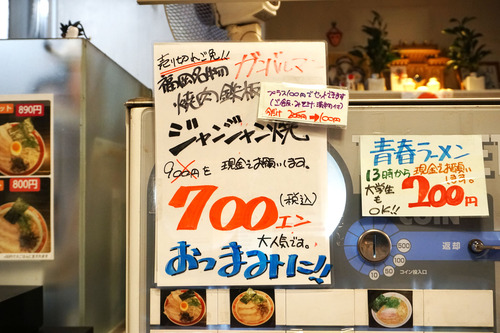 売り切れ御免!!
ガンバルマン
福岡名物
焼肉鉄板
プラス100円でセットできます
200円→100円
ジャンジャン焼
900円を 現金でお願いします。
700エン
(税込)
大人気です。
おつまみに!!
青春ラーメン
13時から
現金でお願い
します。
大学生
も
OK!!
200円
890円
800円
500
100
50
10
コイン投入口
返却